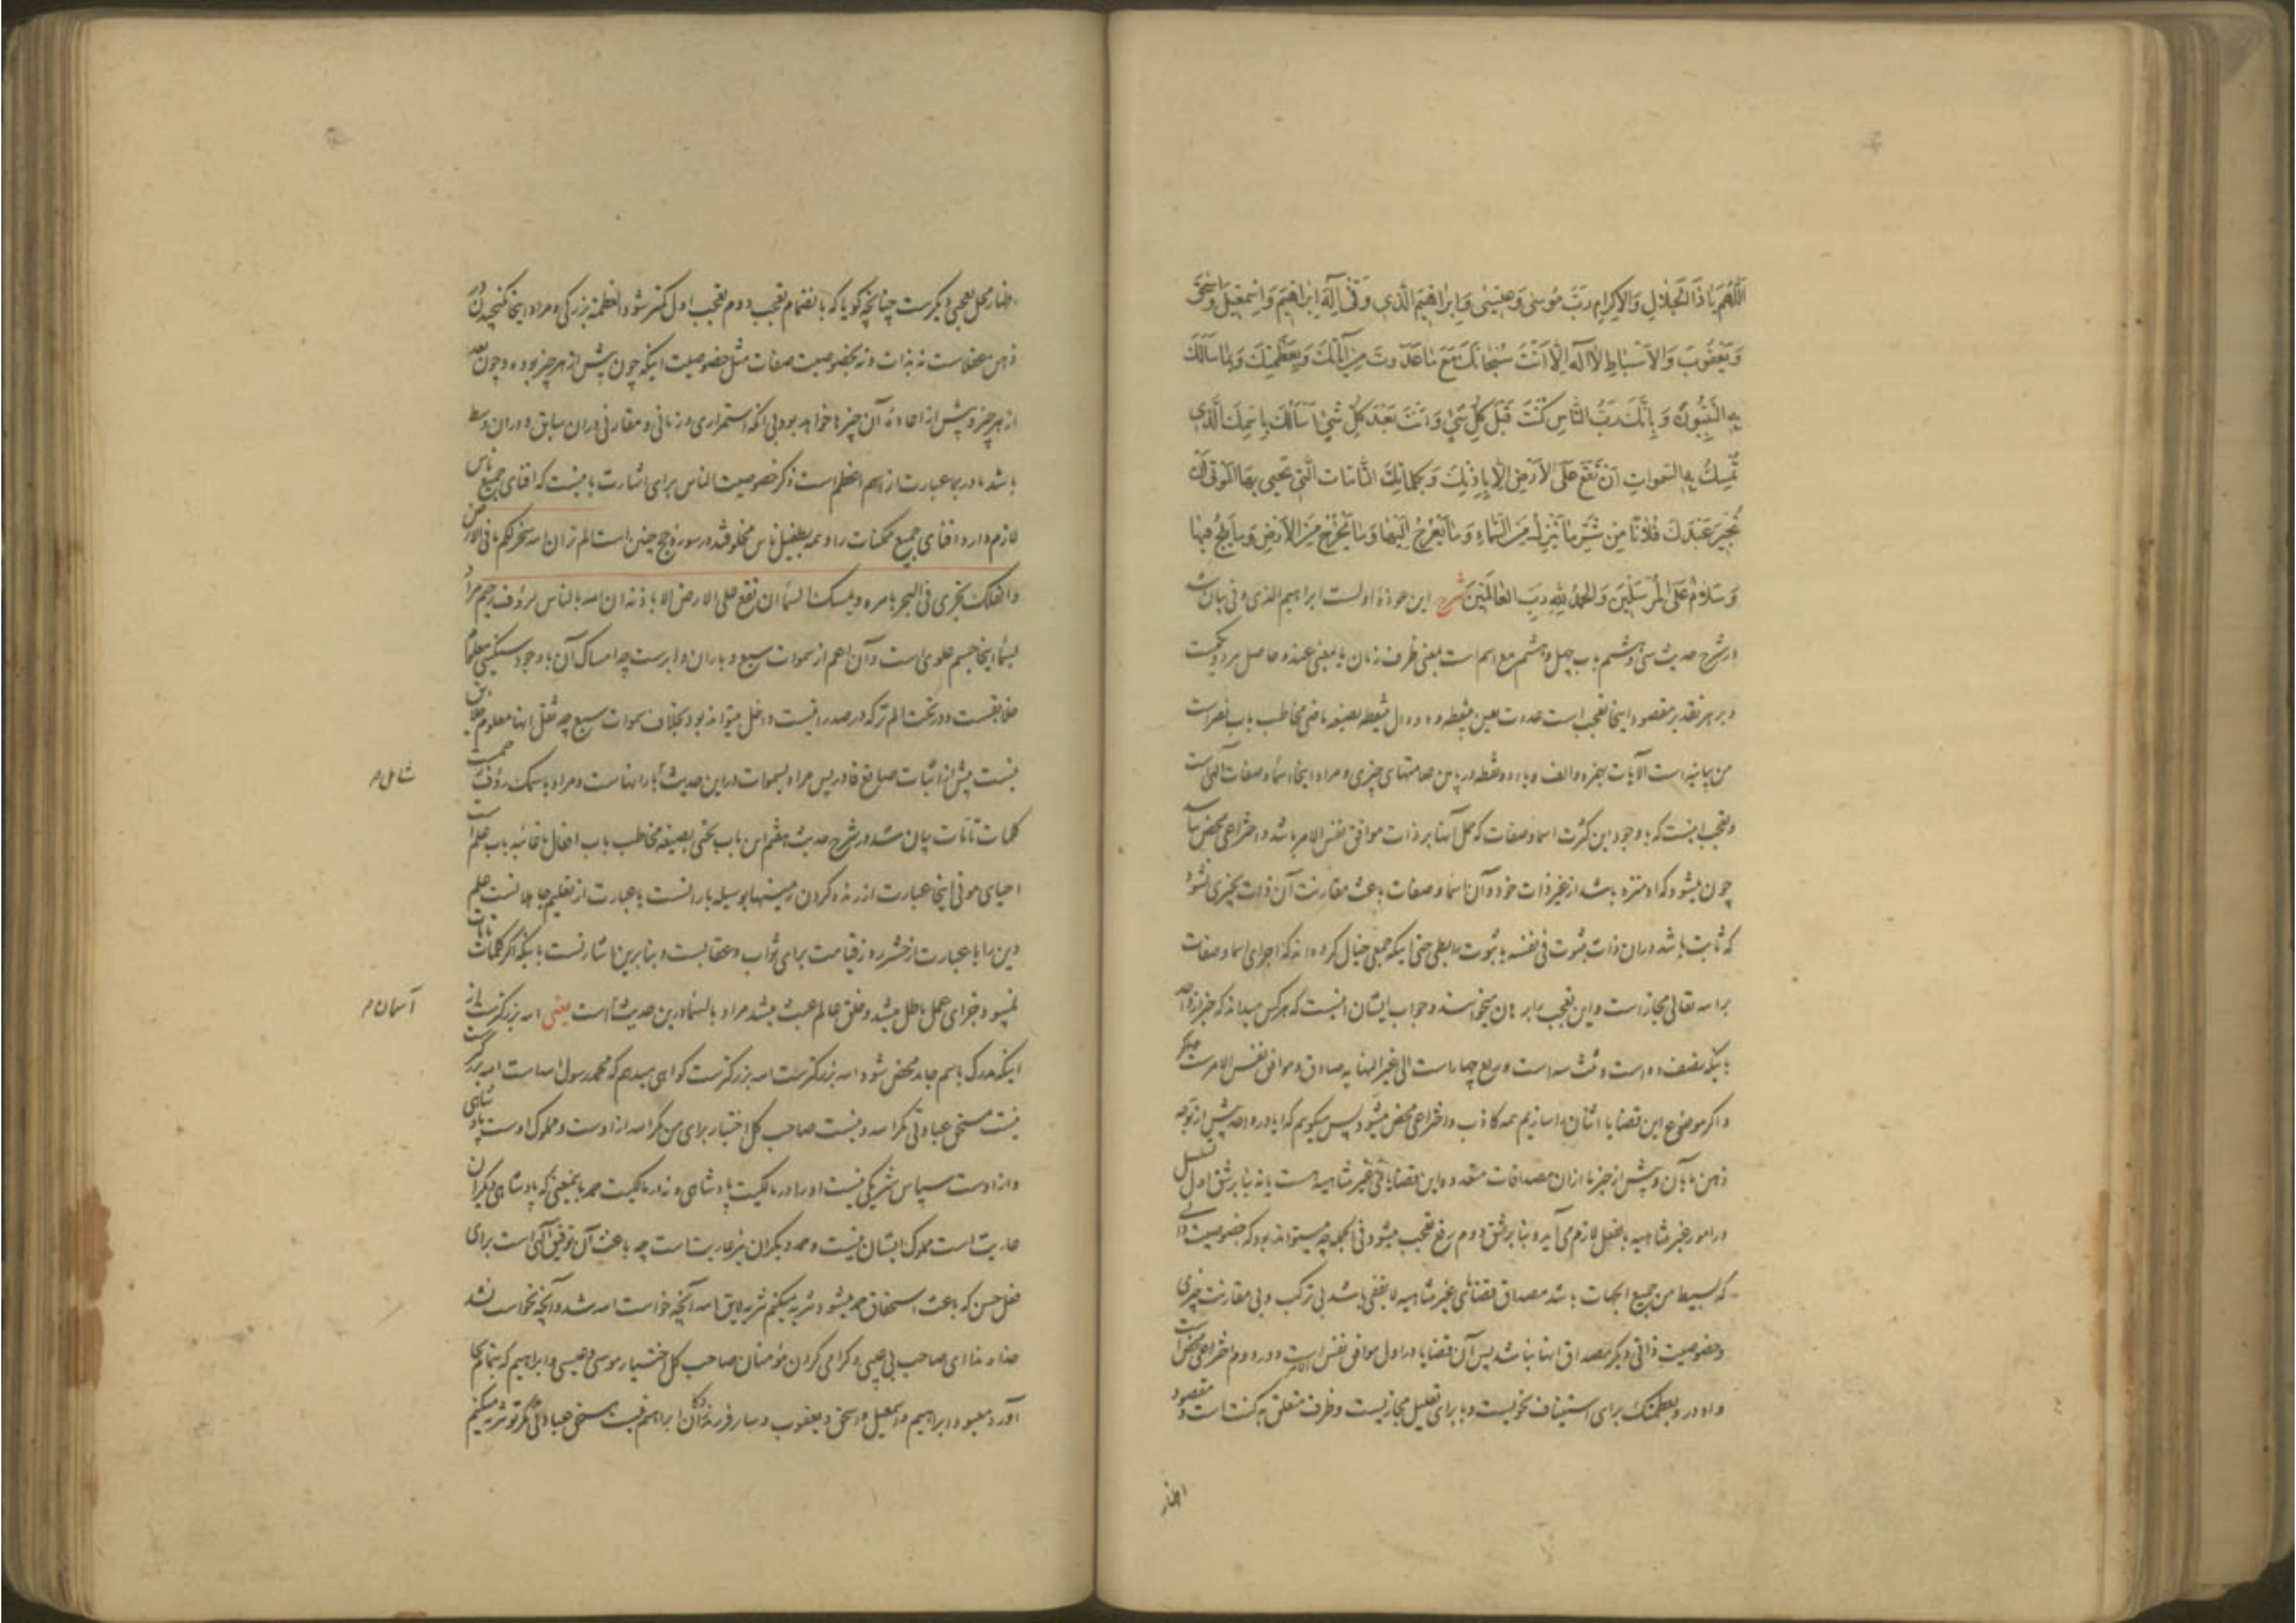 اللَّهُمَّ يَا ذَا الْجَلَالِ وَالْإِكْرَامِ رَبَّ مُوسَى وَعِيسَى وَإِبْرَاهِيمَ الَّذِي وَفَّى إِلَهَ إِبْرَاهِيمَ وَإِسْمَعِيلَ وَإِسْحَقَ
وَيَعْقُوبَ وَالْأَسْبَاطِ لَا إِلَهَ إِلَّا أَنْتَ سُبْحَانَكَ مَعَ مَا عَدَدْتَ مِنْ آيَاتِكَ وَبِعَظَمَتِكَ وَبِمَا سَأَلَكَ
بِهِ النَّبِيُّونَ وَبِأَنَّكَ رَبُّ النَّاسِ كُنْتَ قَبْلَ كُلِّ شَيْءٍ وَأَنْتَ بَعْدَ كُلِّ شَيْءٍ أَسْأَلُكَ بِاسْمِكَ الَّذِي
تُمْسِكُ بِهِ السَّمَوَاتِ أَنْ تَقَعَ عَلَى الْأَرْضِ إِلَّا بِإِذْنِكَ وَبِكَلِمَاتِكَ التَّامَّاتِ الَّتِي تُحْيِي بِهَا الْمَوْتَى أَنْ
تُجِيرَ عَبْدَكَ فُلَانًا مِنْ شَرِّ مَا يَنْزِلُ مِنَ السَّمَاءِ وَمَا يَعْرُجُ إِلَيْهَا وَمَا يَخْرُجُ مِنَ الْأَرْضِ وَمَا يَلِجُ فِيهَا
وَسَلَامٌ عَلَى الْمُرْسَلِينَ وَالْحَمْدُ لِلَّهِ رَبِّ الْعَالَمِينَ شرح این عوذهٔ اولست ابراهیم الذی وفی بیان شد
در شرح حدیث سی و ششم باب چهل و هشتم مع اسم است بمعنی ظرف زمان یا بمعنی عند و حاصل هر دو یکیست
و بر هر تقدیر مقصود اینجا تعجب است عددت بعین بینقطه و دو دال بینقطه بصیغه ماضی مخاطب باب نصر است
من بیانیه است الآیات بهمزه و الف و یاء دو نقطه در پایین علامتهای چیزی و مراد اینجا اسما و صفات الهی است
و تعجب اینست که با وجود این کثرت اسما و صفات که حمل آنها بر ذات موافق نفس الامر باشد و اختراعی محض نباشد
چون میشود که او منزه باشد از غیر ذات خود و آن اسما و صفات باعث مقارنت آن ذات بچیزی نشود
که ثابت باشد در آن ذات بثبوت فی نفسه یا ثبوت رابطی حتی اینکه جمعی خیال کرده اند که اجرای اسما و صفات
بر الله تعالی مجاز است و این تعجب را برهان میخوانند و جواب ایشان اینست که هر کس میداند که
باینکه نصف دو است و ثلث سه است و ربع چهار است الی غیر النهایه صادق و موافق نفس الامر است
و اگر موضوع این قضایا اثنان را سازیم همه کاذب و اختراعی محض میشود پس میگوییم که آیا در واحد پیش از توجه
ذهن ما بآن و پیش از خبر ما ازان مصداقات متعدده این قضایای غیر متناهیه هست یا نه بنا بر شق اول تسلسل
در امور غیر متناهیه بالفعل لازم می آید و بنا بر شق دوم رفع تعجب میشود فی الجمله چه میتواند بود که خصوصیت ذاتی
که بسیط من جمیع الجهات باشد مصداق قضایای غیر متناهیه لا یقفی باشد بی ترکب و بی مقارنت چیزی
و خصوصیت ذاتی دیگر مصداق اینها نباشد پس آن قضایا در اول موافق نفس الامر است و در دوم اختراعی محض است
واو در و بعظمتک برای استیناف نحویست و با برای تعلیل مجازیست و ظرف متعلق به کنت است و مقصود
اظهار
اظهار محل تعجبی دیگرست چنانچه گویا که بانضمام تعجب دوم تعجب اول کمتر شود العظمة بزرگی و مراد اینجا نگنجیدن در
ذهن عقلاست نه بذات و نه بخصوصیت صفات مثل خصوصیت اینکه چون پیش از هر چیز بوده و چون بعد
از هر چیز و پیش از اعادهٔ آن چیزها خواهد بود بی آنکه استمراری و زمانی و مقارنی در آن سابق و در آن وسط
باشد ما در بما عبارت از اسم اعظم است ذکر خصوصیت الناس برای اشارت باینست که افنای جمیع ناس
لازم دارد افنای جمیع ممکنات را و همه بطفیل ناس مخلوق شده در سورهٔ حج چنین است الم تر ان الله سخر لکم ما فی الارض
و الفلک تجری فی البحر بامره و یمسک السماء ان تقع علی الارض الا باذنه ان الله بالناس لرؤف رحیم مراد
بسما اینجا جسم علوی است و آن اعم از سموات سبع و باران و ابر است چه امساک آن با وجود سنگینی معلوم
خلایقست و در تحت الم تر که در صدر آیت است داخل میتواند بود بخلاف سموات سبع چه ثقل اینها معلوم خلایق
نیست پیش از اثبات صانع قادر پس مراد بسموات در این حدیث بارانهاست و مراد بامساک رؤف
شامل م
کلمات تامات بیان شد در شرح حدیث هفتم این باب تحیی بصیغه مخاطب باب افعال یا غائبه باب علم است
احیای موتی اینجا عبارت از زنده کردن زمینها بوسیله بارانست یا عبارت از تعلیم جاهلانست علم
دین را یا عبارت از حشر روز قیامت برای ثواب و عقابست و بنا برین اشارتست باینکه اگر کلمات تامات
نمیبود جزای عمل باطل میشد و خلق عالم عبث میشد مراد بالسماء درین حدیث آسمان است یعنی الله بزرگترست از
آسمان م
اینکه مدرک باسم جامد محض شود الله بزرگترست الله بزرگترست گواهی میدهم که محمد رسول الله است الله بزرگتر است
نیست مستحق عبادتی مگر الله و نیست صاحب کل اختیار برای من مگر الله از اوست و مملوک اوست پادشاهی
و از اوست سپاس شریکی نیست او را در مالکیت پادشاهی و نه در مالکیت حمد باینمعنی که پادشاهی دیگران
عاریت است مملوک ایشان نیست و حمد دیگران نیز عاریت است چه باعث آن توفیق الهی است برای
فعل حسن که باعث استحقاق حمد میشود تنزیه میکنم تنزیه لایق الله آنچه خواست الله شد و آنچه نخواست نشد
خداوندا ای صاحب بی عیبی و گرامی کردن مؤمنان صاحب کل اختیار موسی و عیسی و ابراهیم که بتمام بجا
آورد معبود ابراهیم و اسمعیل و اسحق و یعقوب و سایر فرزندزادگان ابراهیم نیست مستحق عبادتی مگر تو تنزیه میکنم